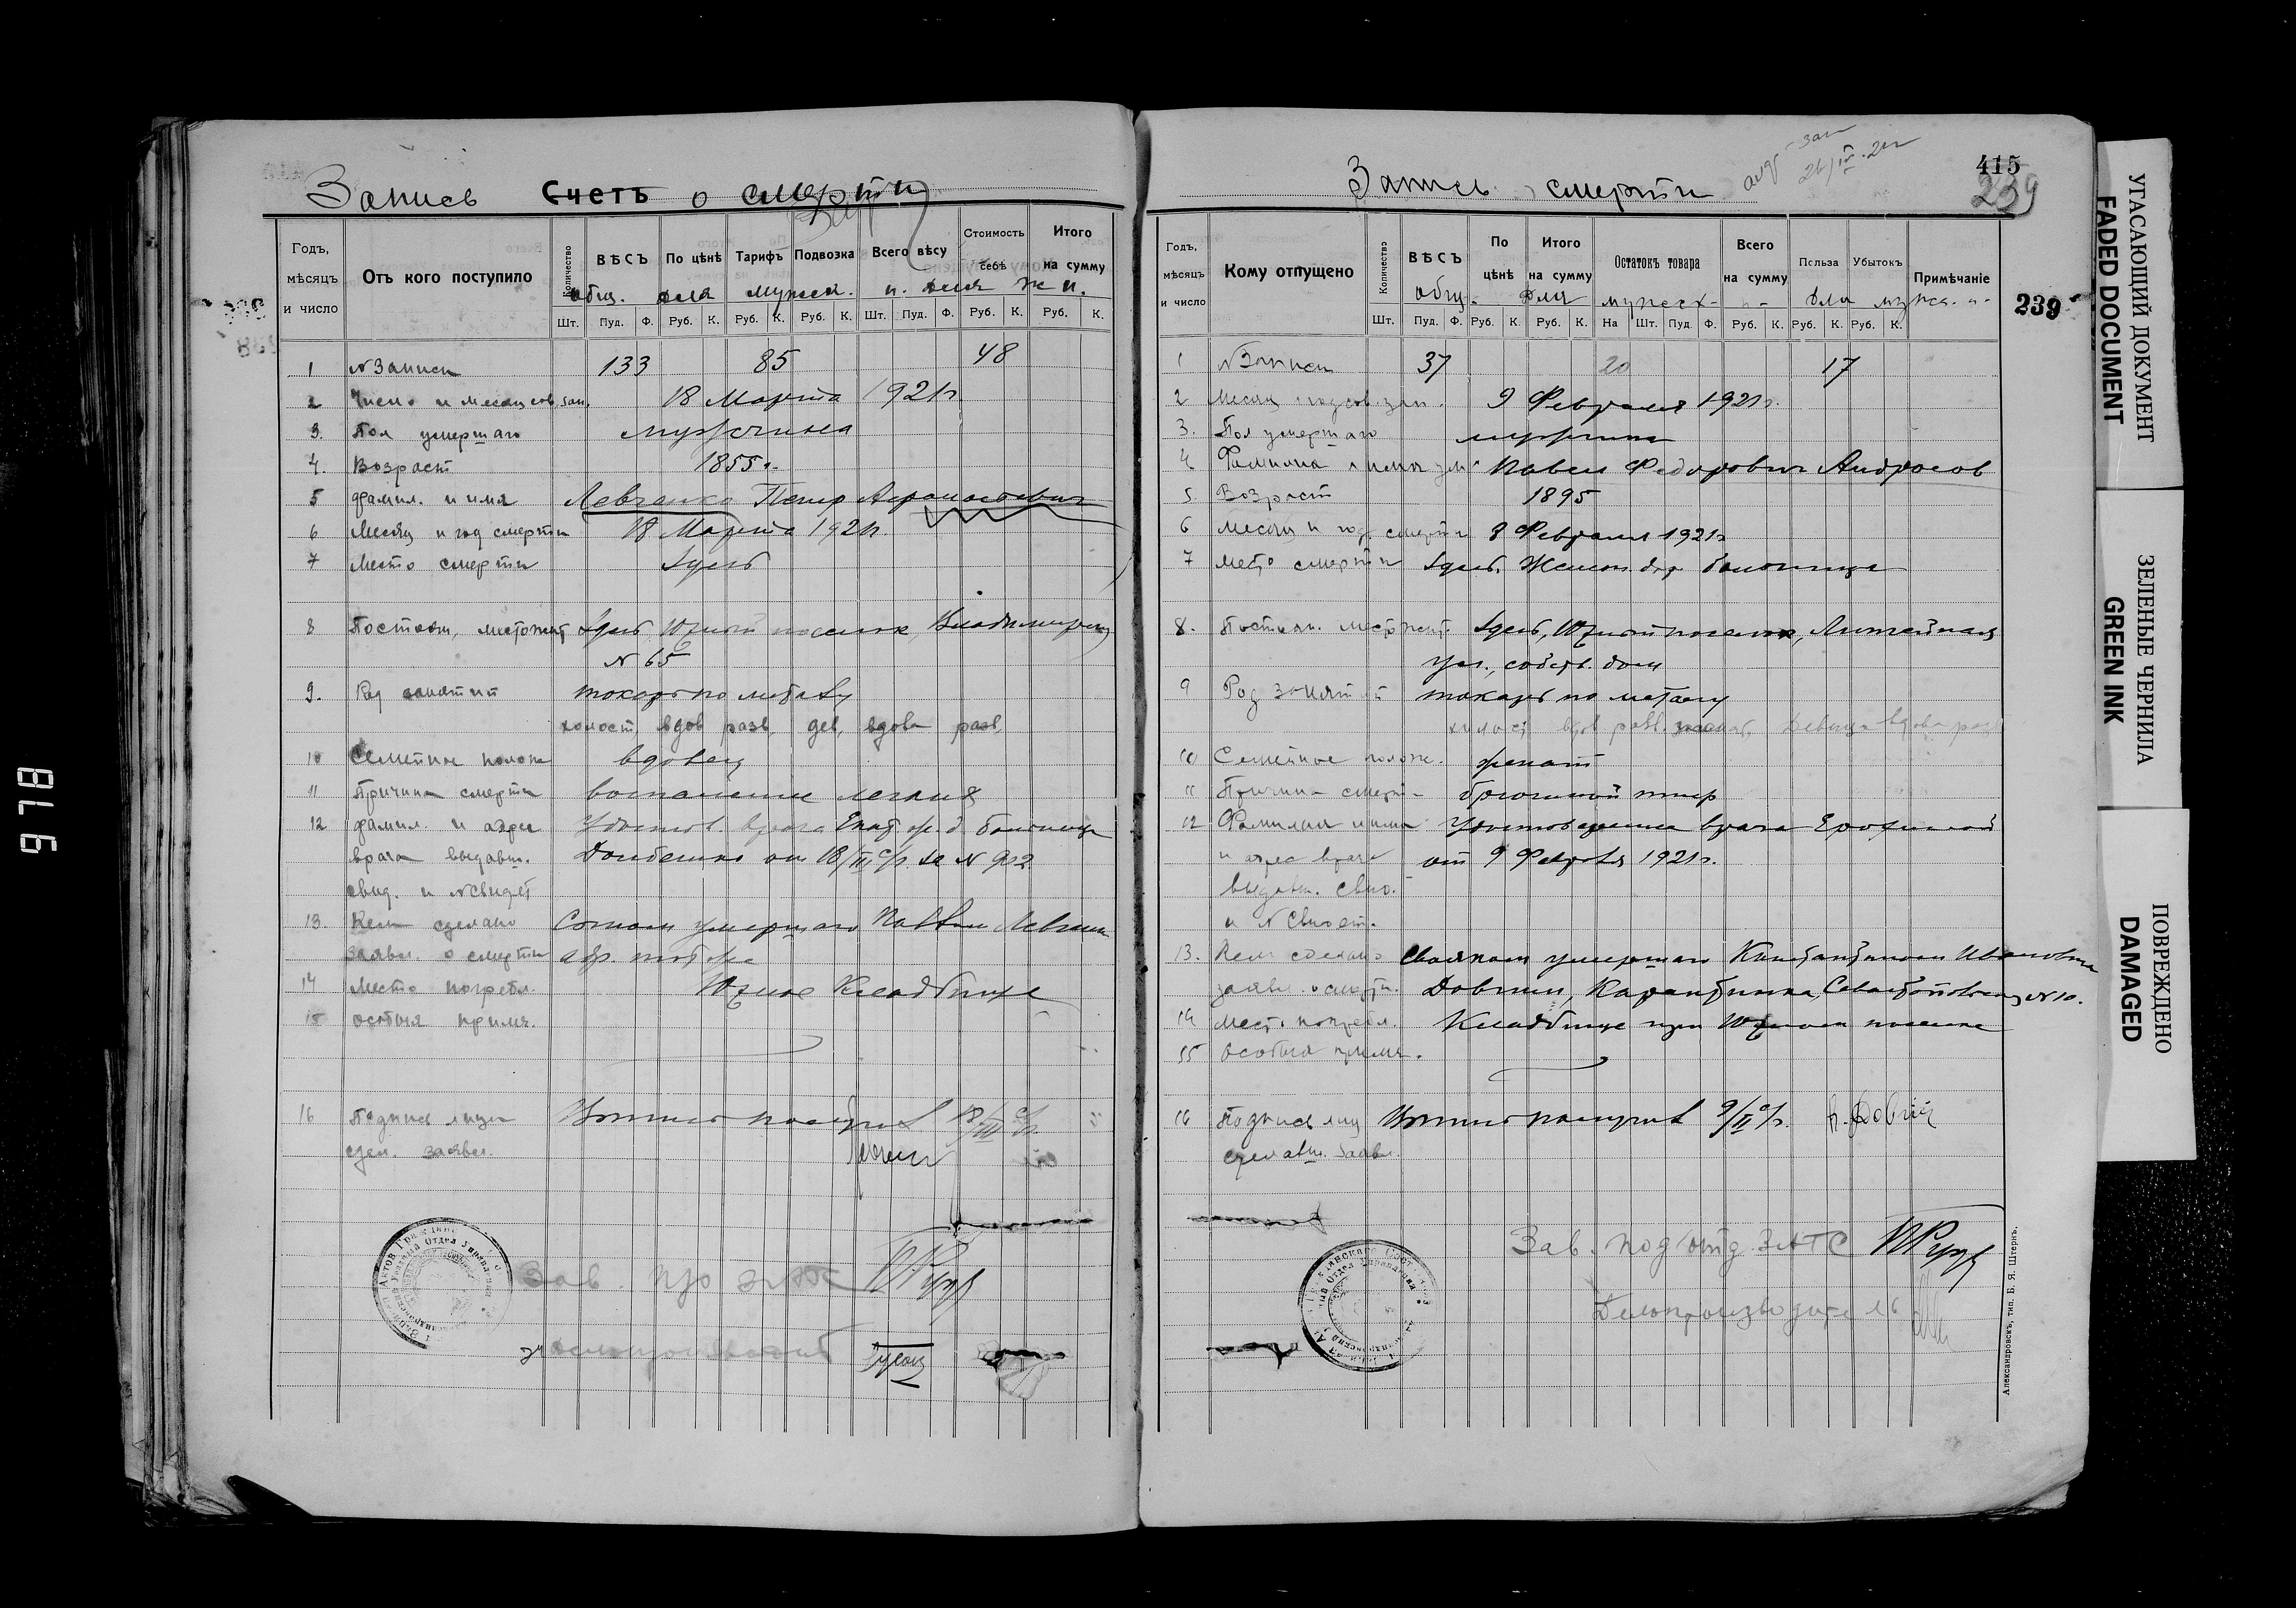 Запись Счетъ о смерти
Годъ, мѣсяцъ и число
Отъ кого поступило
Количество
ВѢСЪ
По цѣнѣ
Тарифъ
Подвозка
Всего вѣсу
Стоимость себѣ
Итого на сумму
общ. для мужск. п. для ж. п.
Шт. Пуд. Ф. Руб. К. Руб. К. Руб. К. Шт. Пуд. Ф. Руб. К. Руб. К.
1 № Записи 133 85 48
2 Число и месяц сов. зап. 18 Марта 1921 г.
3. Пол умершаго мужчина
4. Возраст 1855 г.
5 фамил. и имя Левченко Петр
6 Месяц и год смерти 18 Марта 1921 г.
7 Место смерти здесь
8 Постоян. местожит здесь, Южный поселок, Владимирская
№ 65
9. Род занятий токарь по металу
холост, вдов разв, дев, вдова разв,
10 Семейное полож вдовец
11 Причина смерти воспаление легких
12 фамил. и адрес Удостов. врача Екат. ж. д. больницы
врача выдавш. от 18/III с/г. за № 922
свид. и № свидет
13. Кем сделано Сыном умершаго Левченко
заявл. о смерти адр. тот же
14 Место погребл. Южное Кладбище
15 особыя примеч.
16 Подпись лица Выпись получил 18/III с/г.
сдел. заявл.
Зав. п/о ЗАГС
Запись смерти
415
239
Годъ, мѣсяцъ и число
Кому отпущено
Количество
ВѢСЪ
По цѣнѣ
Итого на сумму
Остатокъ товара
Всего на сумму
Польза
Убытокъ
Примѣчаніе
общ. для мужск. п. для
239
Шт. Пуд. Ф. Руб. К. Руб. К. На Шт. Пуд. Ф. Руб. К. Руб. К. Руб. К.
1 № Записи 37 20 17
2 Месяц и год сов. зап. 9 Февраля 1921 г.
3. Пол умершаго мужчина
4 Фамилия и имя ум. Павел Федорович Андросов
5. Возраст 1895
6 Месяц и год смерти 8 Февраля 1921 г.
7 Место смерти здесь, Желез. дор больница
8. Постоян. местожит. здесь, Южный поселок, Литейная
ул., собств. дом
9 Род занятий токарь по металу
холост вдов разв. женат, Девица вдова разв
10 Семейное полож. женат
11 Причина смерти брюшной тиф
12 Фамилия и имя Удостоверение врача Ерохиной
и адрес врача от 9 Февраля 1921 г.
выдавш. свид.
и № свидет.
13. Кем сделано Свояком умершаго Константином Ивановичем
заявл. о смерти. Довгим, Карантинка, Севастопольская № 10.
14 Место погребл. Кладбище при Южном поселке
15 особыя примеч.
16 Подпись лица Выпись получил 9/II с/г. К. Довгий
сделавш. заявл.
Зав. подотд. ЗАГС
Делопроизводитель
Александровскъ, тип. Б. Я. Штернъ.
УГАСАЮЩИЙ ДОКУМЕНТ
FADED DOCUMENT
ЗЕЛЕНЫЕ ЧЕРНИЛА
GREEN INK
ПОВРЕЖДЕНО
DAMAGED